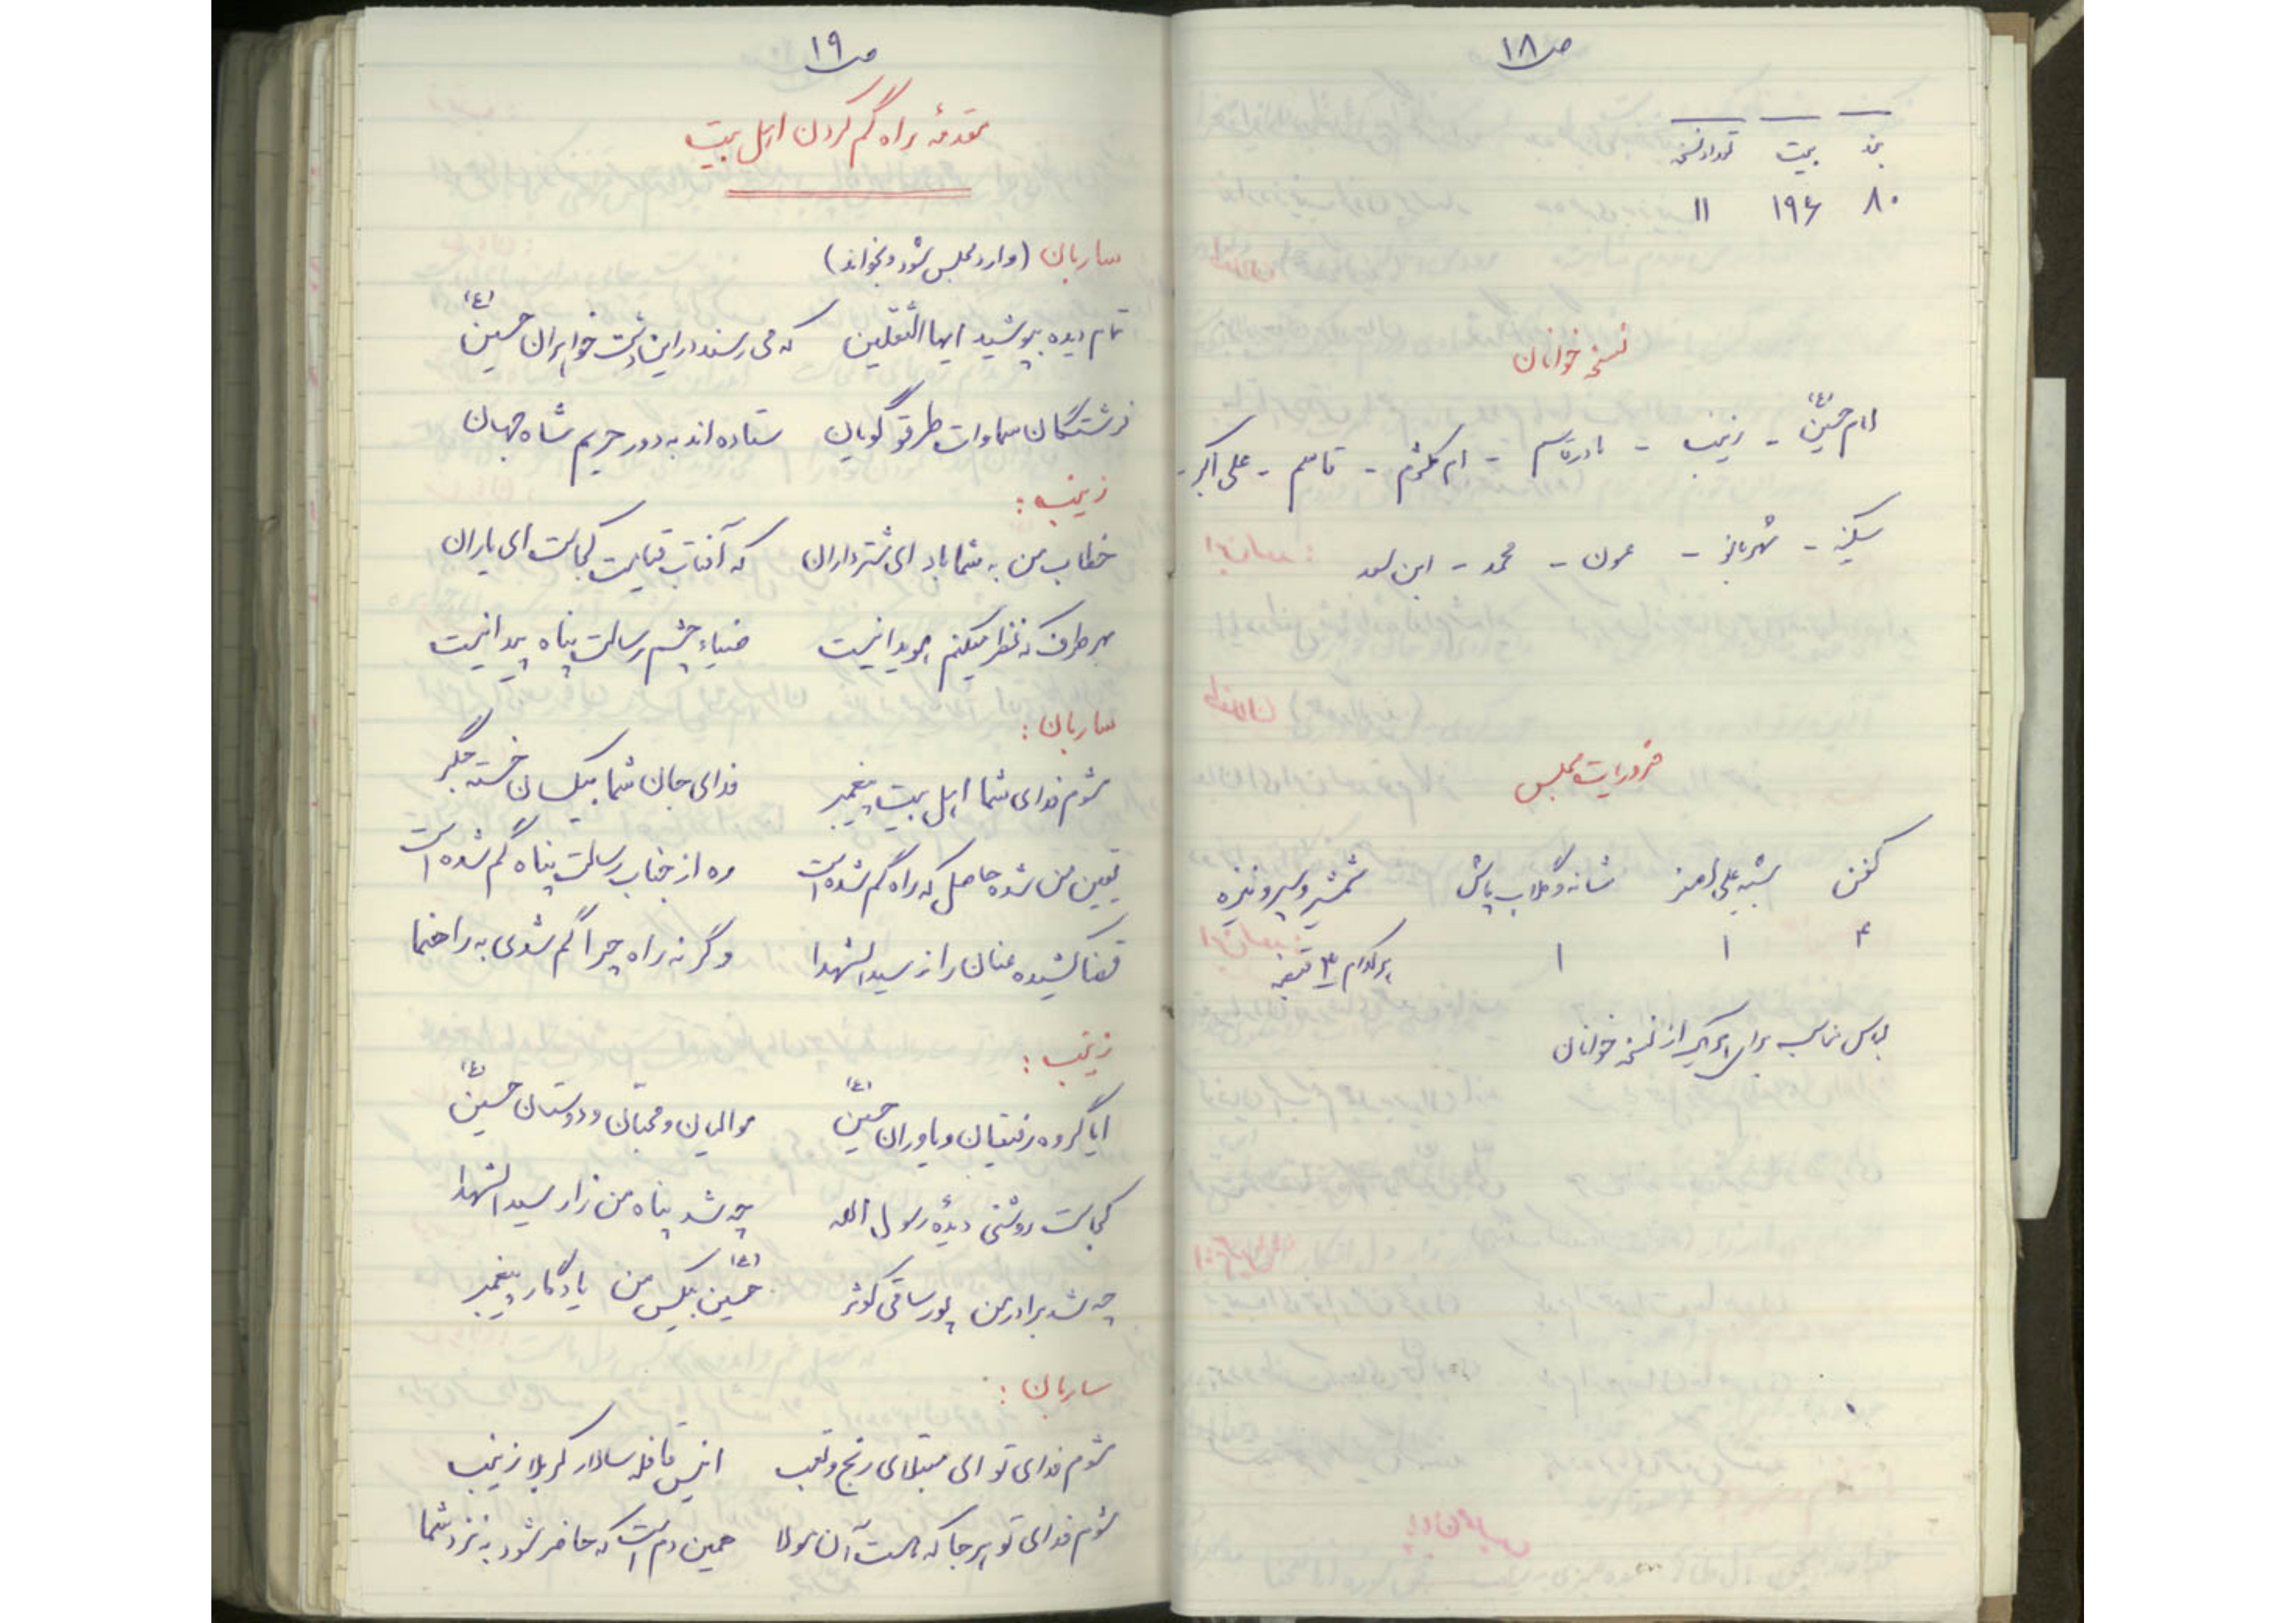 ص۱۸
بند بیت تعداد نسخه
۸۰ ۱۹۶ ۱۱
نسخه خوانان
امام حسین (ع) - زینب - مادر قاسم - ام کلثوم - قاسم - علی اکبر -
سکینه - شهربانو - عون - محمد - ابن سعد
ضروریات مجلس
کفن شبیه علی اصغر شانه و گلاب پاش شمشیر و سپر و نیزه
۴ ۱ ۱ هر کدام ۳ قبضه
لباس مناسب برای هر یک از نسخه خوانان
ص۱۹
مقدمهٔ راه گم کردن اهل بیت
ساربان (وارد مجلس شود و بخواند)
تمام دیده بپوشید ایها الثقلین که می رسند در این دشت خواهران حسین (ع)
فرشتگان سماوات طرقو گویان ستاده اند به دور حریم شاه جهان
زینب :
خطاب من به شما باد ای شترداران که آفتاب قیامت کجاست ای یاران
بهر طرف که نظر میکنم هویدا نیست ضیاء چشم رسالت پناه پیدا نیست
ساربان :
شوم فدای شما اهل بیت پیغمبر فدای جان شما بیکسان خسته جگر
یقین من شده حاصل که راه گم شده است ره از جناب رسالت پناه گم شده است
قضا کشیده عنان را از سید الشهدا وگرنه راه چرا گم شدی به راهنما
زینب :
ایا گروه رفیقان و یاوران حسین (ع) موالیان و محبان و دوستان حسین (ع)
کجاست روشنی دیدهٔ رسول الله چه شد پناه من زار سید الشهدا
چه شد برادر من پور ساقی کوثر حسین (ع) بیکس من یادگار پیغمبر
ساربان :
شوم فدای تو ای مبتلای رنج و تعب انیس قافله سالار کربلا زینب
شوم فدای تو هر جا که هست آن مولا همین دم است که حاضر شود به نزد شما